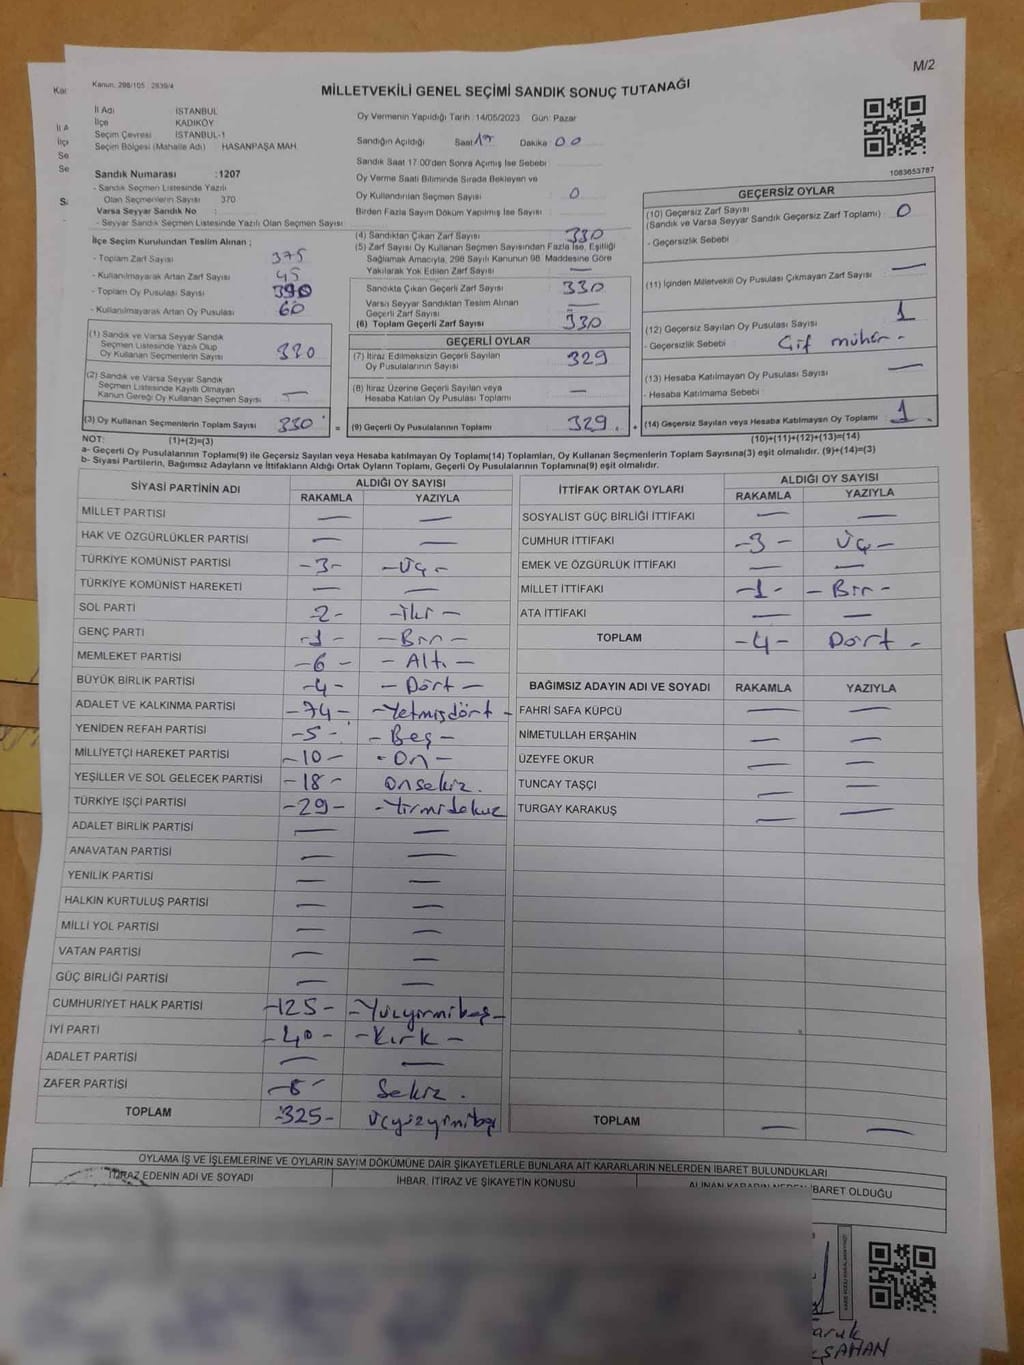 M/2
Kanun, 298/105 2839/4
MİLLETVEKİLİ GENEL SEÇİMİ SANDIK SONUÇ TUTANAĞI
İl Adı İSTANBUL
İlçe KADIKÖY
Seçim Çevresi İSTANBUL-1
Seçim Bölgesi (Mahalle Adı) HASANPAŞA MAH
Sandık Numarası :1207
- Sandık Seçmen Listesinde Yazılı
Olan Seçmenlerin Sayısı 370
Varsa Seyyar Sandık No :
- Seyyar Sandık Seçmen Listesinde Yazılı Olan Seçmen Sayısı:
İlçe Seçim Kurulundan Teslim Alınan ;
- Toplam Zarf Sayısı 375
- Kullanılmayarak Artan Zarf Sayısı 45
- Toplam Oy Pusulası Sayısı 390
- Kullanılmayarak Artan Oy Pusulası 60
(1) Sandık ve Varsa Seyyar Sandık
Seçmen Listesinde Yazılı Olup
Oy Kullanan Seçmenlerin Sayısı 330
(2) Sandık ve Varsa Seyyar Sandık
Seçmen Listesinde Kayıtlı Olmayan
Kanun Gereği Oy Kullanan Seçmen Sayısı —
(3) Oy Kullanan Seçmenlerin Toplam Sayısı 330
Oy Vermenin Yapıldığı Tarih : 14/05/2023 Gün: Pazar
Sandığın Açıldığı Saat 17 Dakika 00
Sandık Saat 17:00'den Sonra Açılmış İse Sebebi
Oy Verme Saati Bitiminde Sırada Bekleyen ve
Oy Kullandırılan Seçmen Sayısı 0
Birden Fazla Sayım Döküm Yapılmış İse Sayısı :
(4) Sandıktan Çıkan Zarf Sayısı 330
(5) Zarf Sayısı Oy Kullanan Seçmen Sayısından Fazla İse, Eşitliği
Sağlamak Amacıyla, 298 Sayılı Kanunun 98. Maddesine Göre
Yakılarak Yok Edilen Zarf Sayısı —
Sandıkta Çıkan Geçerli Zarf Sayısı 330
Varsa Seyyar Sandıktan Teslim Alınan
Geçerli Zarf Sayısı —
(6) Toplam Geçerli Zarf Sayısı 330
GEÇERLİ OYLAR
(7) İtiraz Edilmeksizin Geçerli Sayılan
Oy Pusulalarının Sayısı 329
(8) İtiraz Üzerine Geçerli Sayılan veya
Hesaba Katılan Oy Pusulası Toplamı —
= (9) Geçerli Oy Pusulalarının Toplamı 329.
1083653787
GEÇERSİZ OYLAR
(10) Geçersiz Zarf Sayısı
(Sandık ve Varsa Seyyar Sandık Geçersiz Zarf Toplamı) 0
- Geçersizlik Sebebi
(11) İçinden Milletvekili Oy Pusulası Çıkmayan Zarf Sayısı —
(12) Geçersiz Sayılan Oy Pusulası Sayısı 1
- Geçersizlik Sebebi Çif mühür -
(13) Hesaba Katılmayan Oy Pusulası Sayısı —
- Hesaba Katılmama Sebebi
+ (14) Geçersiz Sayılan veya Hesaba Katılmayan Oy Toplamı 1.
NOT: (1)+(2)=(3) (10)+(11)+(12)+(13)=(14)
a- Geçerli Oy Pusulalarının Toplamı(9) ile Geçersiz Sayılan veya Hesaba katılmayan Oy Toplamı(14) Toplamları, Oy Kullanan Seçmenlerin Toplam Sayısına(3) eşit olmalıdır. (9)+(14)=(3)
b- Siyasi Partilerin, Bağımsız Adayların ve İttifakların Aldığı Ortak Oyların Toplamı, Geçerli Oy Pusulalarının Toplamına(9) eşit olmalıdır.
SİYASİ PARTİNİN ADI ALDIĞI OY SAYISI
RAKAMLA YAZIYLA
MİLLET PARTİSİ — —
HAK VE ÖZGÜRLÜKLER PARTİSİ — —
TÜRKİYE KOMÜNİST PARTİSİ -3- -Üç-
TÜRKİYE KOMÜNİST HAREKETİ — —
SOL PARTİ -2- -İki-
GENÇ PARTİ -1- -Bir-
MEMLEKET PARTİSİ -6- -Altı-
BÜYÜK BİRLİK PARTİSİ -4- -Dört-
ADALET VE KALKINMA PARTİSİ -74- -Yetmişdört-
YENİDEN REFAH PARTİSİ -5- -Beş-
MİLLİYETÇİ HAREKET PARTİSİ -10- -On-
YEŞİLLER VE SOL GELECEK PARTİSİ -18- Onsekiz.
TÜRKİYE İŞÇİ PARTİSİ -29- -Yirmidokuz
ADALET BİRLİK PARTİSİ — —
ANAVATAN PARTİSİ — —
YENİLİK PARTİSİ — —
HALKIN KURTULUŞ PARTİSİ — —
MİLLİ YOL PARTİSİ — —
VATAN PARTİSİ — —
GÜÇ BİRLİĞİ PARTİSİ — —
CUMHURİYET HALK PARTİSİ -125- -Yüzyirmibeş-
İYİ PARTİ -40- -Kırk-
ADALET PARTİSİ — —
ZAFER PARTİSİ -8- Sekiz.
TOPLAM -325- Üçyüzyirmibeş
İTTİFAK ORTAK OYLARI ALDIĞI OY SAYISI
RAKAMLA YAZIYLA
SOSYALİST GÜÇ BİRLİĞİ İTTİFAKI — —
CUMHUR İTTİFAKI -3- Üç-
EMEK VE ÖZGÜRLÜK İTTİFAKI — —
MİLLET İTTİFAKI -1- -Bir-
ATA İTTİFAKI — —
TOPLAM -4- Dört-
BAĞIMSIZ ADAYIN ADI VE SOYADI RAKAMLA YAZIYLA
FAHRİ SAFA KÜPCÜ — —
NİMETULLAH ERŞAHİN — —
ÜZEYFE OKUR — —
TUNCAY TAŞÇI — —
TURGAY KARAKUŞ — —
TOPLAM — —
OYLAMA İŞ VE İŞLEMLERİNE VE OYLARIN SAYIM DÖKÜMÜNE DAİR ŞİKAYETLERLE BUNLARA AİT KARARLARIN NELERDEN İBARET BULUNDUKLARI
İTİRAZ EDENİN ADI VE SOYADI İHBAR, İTİRAZ VE ŞİKAYETİN KONUSU ALINAN KARARIN NEDEN İBARET OLDUĞU